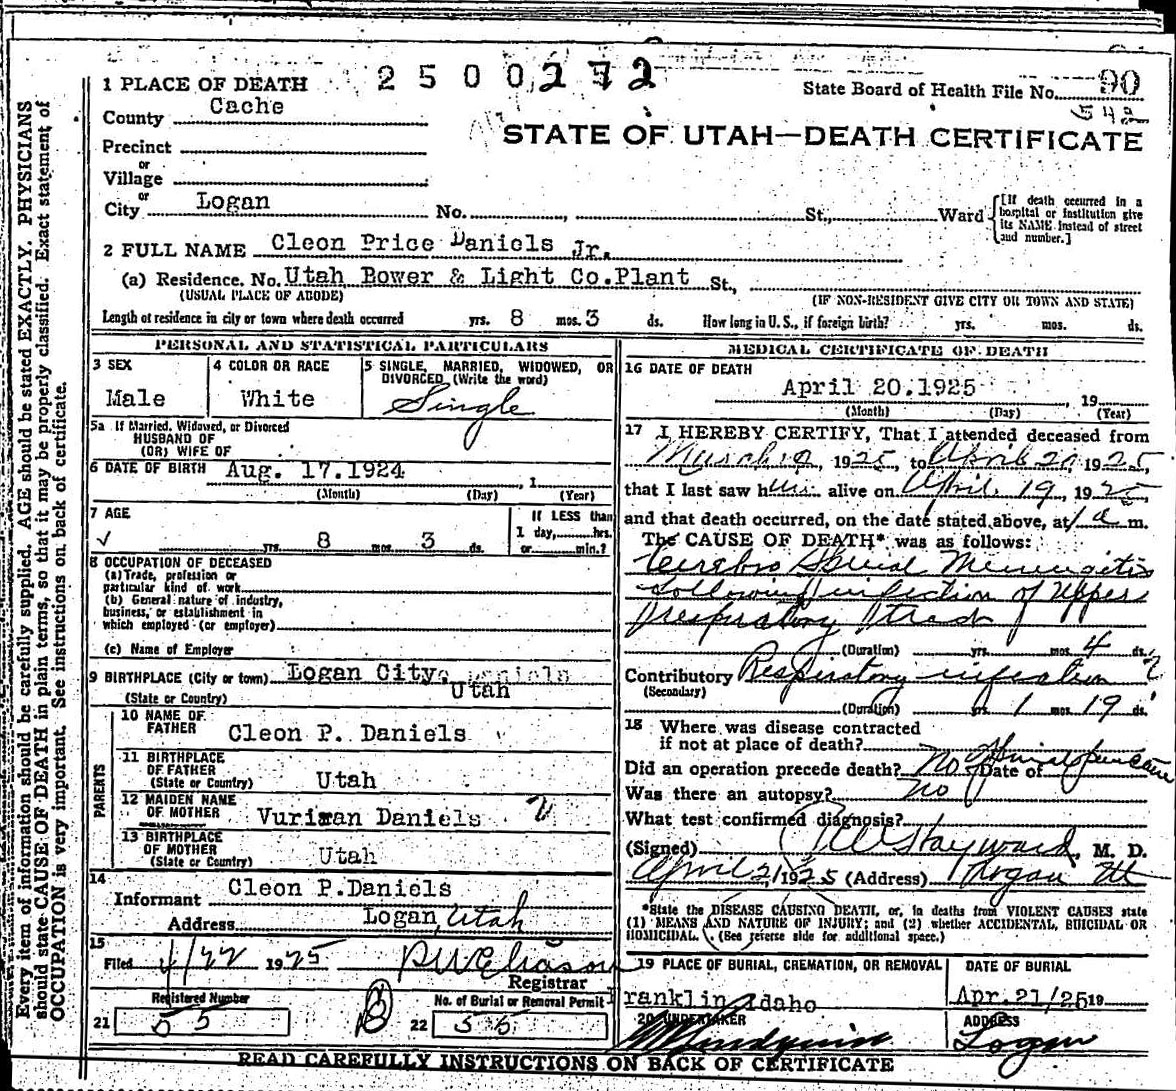 2500272
State Board of Health File No. 90
542
1 PLACE OF DEATH
County Cache
STATE OF UTAH—DEATH CERTIFICATE
Precinct
or
Village
or
City Logan No. , St., Ward
[If death occurred in a hospital or institution give its NAME instead of street and number.]
2 FULL NAME Cleon Price Daniels Jr.
(a) Residence. No. Utah Bower & Light Co.Plant St.,
(USUAL PLACE OF ABODE) (IF NON-RESIDENT GIVE CITY OR TOWN AND STATE)
Length of residence in city or town where death occurred yrs. 8 mos. 3 ds. How long in U. S., if foreign birth? yrs. mos. ds.
PERSONAL AND STATISTICAL PARTICULARS
3 SEX
Male
4 COLOR OR RACE
White
5 SINGLE, MARRIED, WIDOWED, OR DIVORCED (Write the word)
Single
5a If Married, Widowed, or Divorced
HUSBAND OF
(OR) WIFE OF
6 DATE OF BIRTH Aug. 17.1924 , 1
(Month) (Day) (Year)
7 AGE
yrs. 8 mos. 3 ds.
If LESS than
1 day, hrs.
or min.?
8 OCCUPATION OF DECEASED
(a) Trade, profession or
particular kind of work
(b) General nature of industry,
business, or establishment in
which employed (or employer)
(c) Name of Employer
9 BIRTHPLACE (City or town) Logan City,
(State or Country) Utah
PARENTS
10 NAME OF FATHER
Cleon P. Daniels
11 BIRTHPLACE OF FATHER
(State or Country) Utah
12 MAIDEN NAME OF MOTHER
Daniels
13 BIRTHPLACE OF MOTHER
(State or Country) Utah
14
Informant Cleon P.Daniels
Address Logan, Utah
15
Filed 4/22 1925 Registrar
Registered Number
21 55
No. of Burial or Removal Permit
22 55
MEDICAL CERTIFICATE OF DEATH
16 DATE OF DEATH
April 20.1925 , 19
(Month) (Day) (Year)
17 I HEREBY CERTIFY, That I attended deceased from
March , 1925, to April 20 1925,
that I last saw him alive on April 19, 1925
and that death occurred, on the date stated above, at 1 a m.
The CAUSE OF DEATH* was as follows:
Cerebro Spinal Meningitis
following infection of Upper
Respiratory Tract
(Duration) yrs. mos. 4 ds.
Contributory Respiratory infection
(Secondary)
(Duration) yrs. 1 mos. 19 ds.
18 Where was disease contracted
if not at place of death?
Did an operation precede death? No Date of Spinal puncture
Was there an autopsy? no
What test confirmed diagnosis?
(Signed) Hayward, M. D.
April 21 1925 (Address) Logan Ut
*State the DISEASE CAUSING DEATH, or, in deaths from VIOLENT CAUSES state
(1) MEANS AND NATURE OF INJURY; and (2) whether ACCIDENTAL, SUICIDAL OR
HOMICIDAL. (See reverse side for additional space.)
19 PLACE OF BURIAL, CREMATION, OR REMOVAL
ranklin Idaho
DATE OF BURIAL
Apr.21/25 19
20 UNDERTAKER
ADDRESS
Logan
READ CAREFULLY INSTRUCTIONS ON BACK OF CERTIFICATE
Every item of information should be carefully supplied. AGE should be stated EXACTLY. PHYSICIANS
should state CAUSE OF DEATH in plain terms, so that it may be properly classified. Exact statement of
OCCUPATION is very important. See instructions on back of certificate.